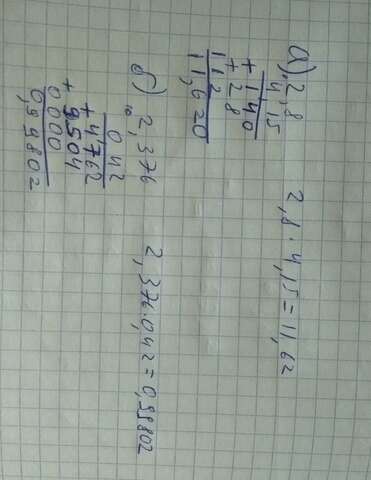 а) 2,8
4,15
2,8 · 4,15 = 11,62
+ 140
+ 28
112
11,620
б) 2,376
0 42
2,376 · 0,42 = 0,99802
+ 4762
+ 9504
0000
0,99802